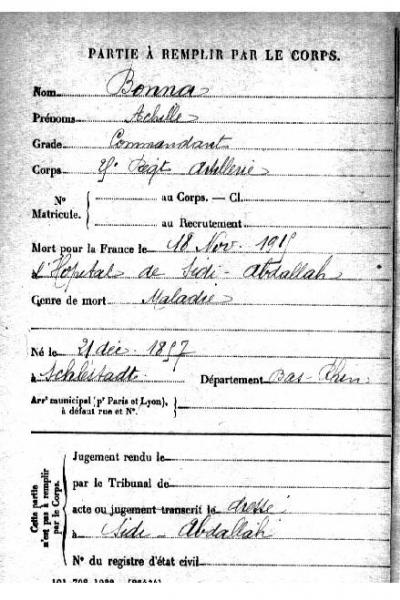 PARTIE À REMPLIR PAR LE CORPS.
Nom Bonna
Prénoms Achille
Grade Commandant
Corps Régt Artillerie
N° Matricule. { au Corps. — Cl.
au Recrutement
Mort pour la France le 18 Nov. 1915
l'Hopital de Sidi-Abdallah
Genre de mort Maladie
Né le 21 déc. 1857
à Schlestadt Département Bas-Rhin
Arrt municipal (pr Paris et Lyon), à défaut rue et N°. }
Cette partie n'est pas à remplir par le Corps. {
Jugement rendu le
par le Tribunal de
acte ou jugement transcrit le dressé
à Sidi-Abdallah
N° du registre d'état civil